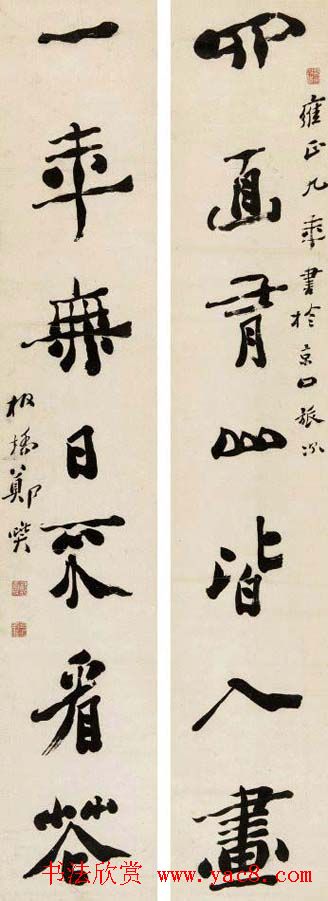 雍正九年書於京口旅次
四面青山皆入畫
一年無日不看花
板橋鄭燮
书法欣赏 www.yac8.com